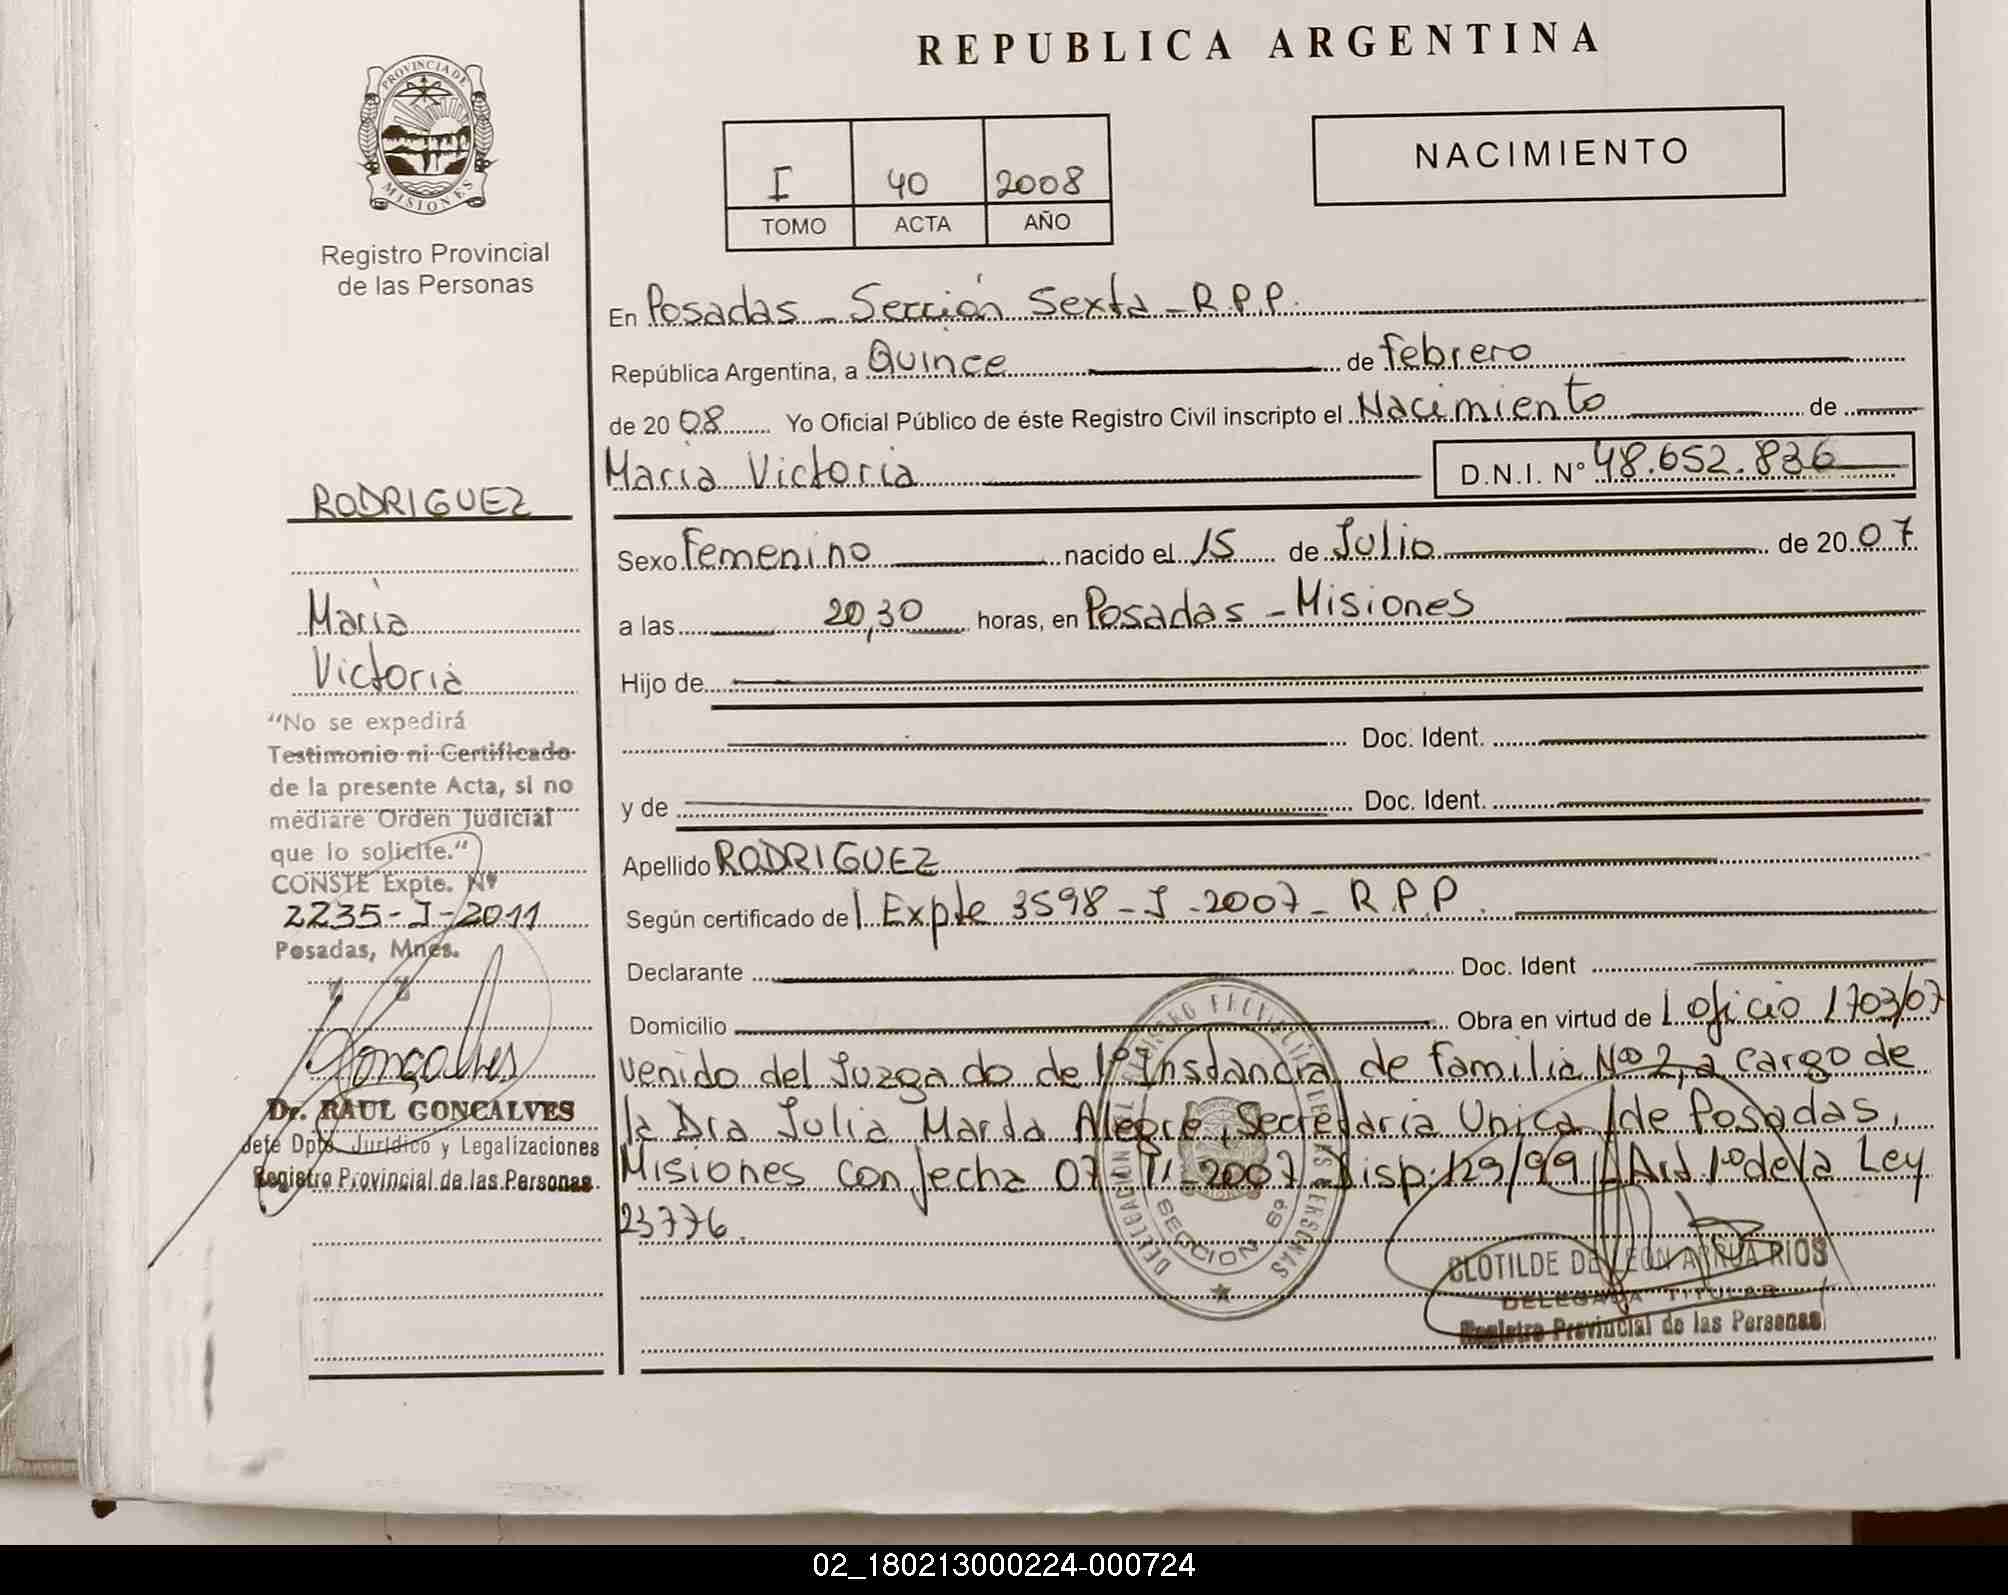 REPUBLICA ARGENTINA
PROVINCIA DE
MISIONES
Registro Provincial
de las Personas
I 40 2008
TOMO ACTA AÑO
NACIMIENTO
En Posadas - Sección Sexta - R.P.P.
República Argentina, a Quince de febrero
de 2008 Yo Oficial Público de éste Registro Civil inscripto el Nacimiento de
María Victoria D.N.I. Nº 48.652.836
Sexo Femenino nacido el 15 de Julio de 2007
a las 20,30 horas, en Posadas - Misiones
Hijo de
Doc. Ident.
y de Doc. Ident.
Apellido RODRIGUEZ
Según certificado de Expte 3598 - J - 2007 - R.P.P.
Declarante Doc. Ident
Domicilio Obra en virtud de oficio 1703/07
venido del Juzgado de 1º Instancia de familia Nº 2, a cargo de
la Dra Julia Marta Alegre, Secretaria Unica de Posadas,
Misiones con fecha 07 11 - 2007 Disp. 129/99 Art 1º de la Ley
23776.
RODRIGUEZ
María
Victoria
"No se expedirá
Testimonio ni Certificado
de la presente Acta, si no
mediare Orden Judicial
que lo solicite."
CONSTE Expte. Nº
2235-J-2011
Posadas, Mnes.
Goncalves
Dr. RAUL GONCALVES
Jefe Dpto. Jurídico y Legalizaciones
Registro Provincial de las Personas
REGISTRO PROVINCIAL DE LAS PERSONAS
DELEGACION
SECCION 6º
CLOTILDE DE LEON ARRUA RIOS
DELEGADA TITULAR
Registro Provincial de las Personas
02_180213000224-000724